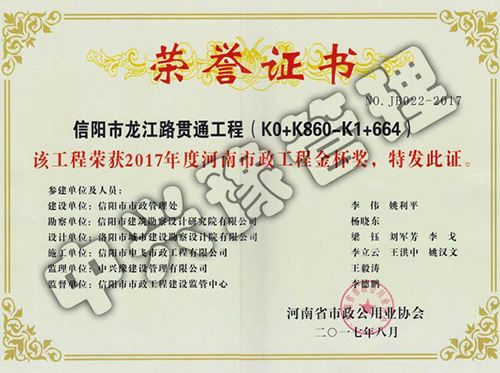 荣誉证书
NO.JB022-2017
信阳市龙江路贯通工程(K0+K860-K1+664)
该工程荣获2017年度河南市政工程金杯奖，特发此证。
参建单位及人员：
建设单位：信阳市市政管理处 李伟 姚利平
勘察单位：信阳市建筑勘察设计研究院有限公司 杨晓东
设计单位：洛阳市城市建设勘察设计院有限公司 梁钰 刘军芳 李戈
施工单位：信阳市申飞市政工程有限公司 李立云 王洪中 姚汉文
监理单位：中兴豫建设管理有限公司 王毅涛
监督单位：信阳市市政工程建设监管中心 李德鹏
河南省市政公用业协会
二〇一七年八月
中兴豫管理